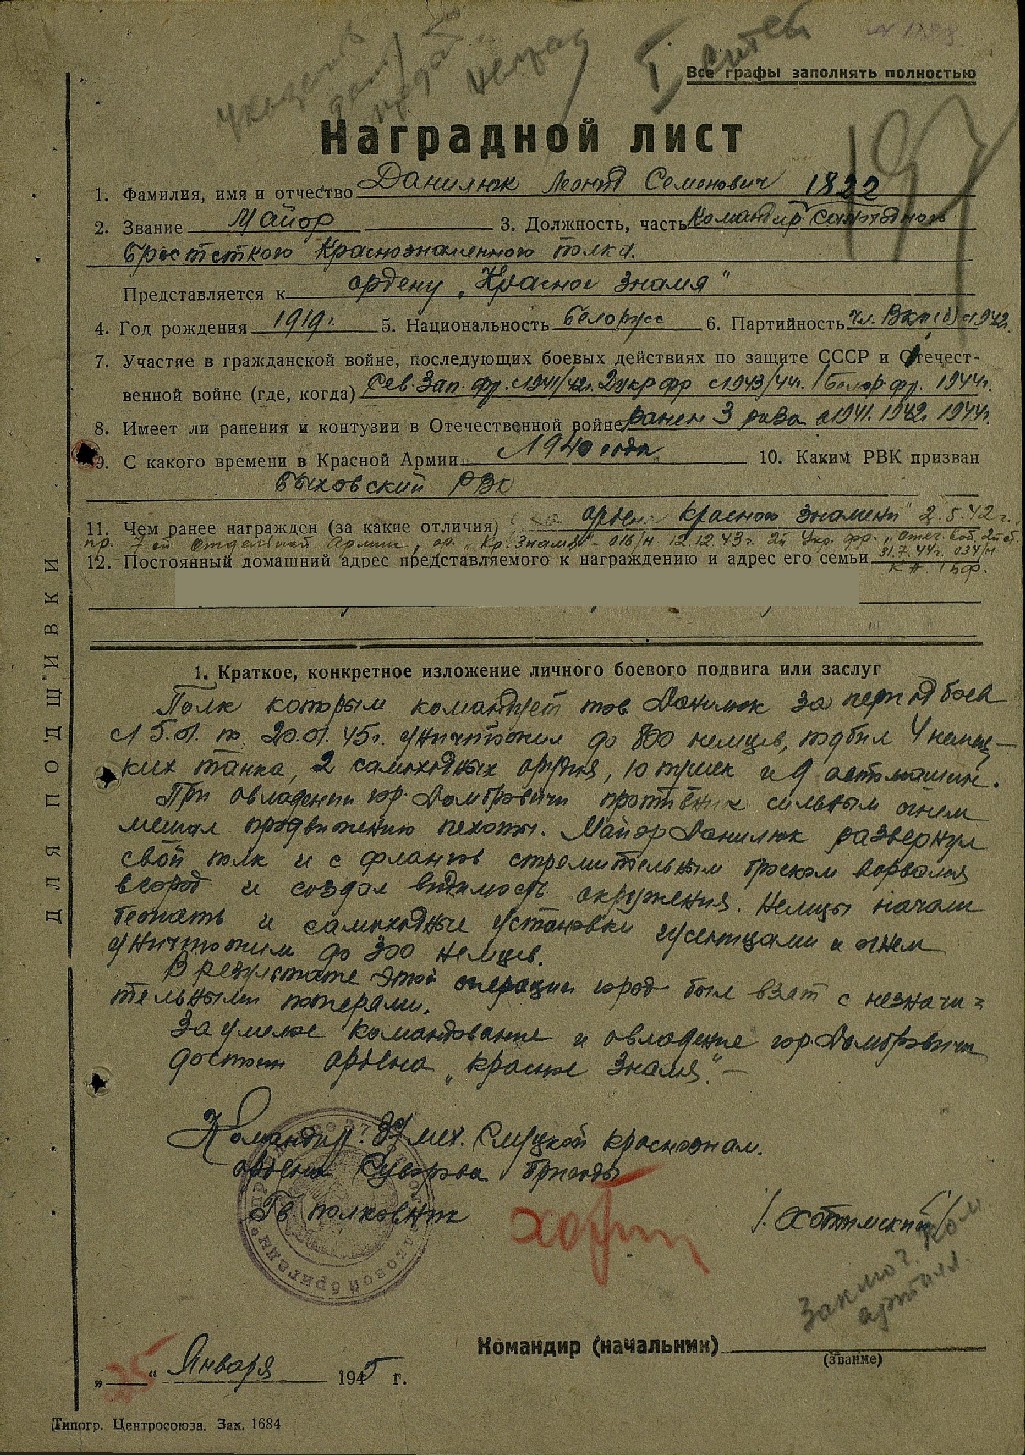 Все графы заполнять полностью
197
Наградной лист
1. Фамилия, имя и отчество Данилюк Леонид Семенович 1822
2. Звание Майор 3. Должность, часть Командир самоходного
Брестского Краснознаменного полка.
Представляется к ордену „Красное знамя"
4. Год рождения 1919г. 5. Национальность белорусс 6. Партийность чл. ВКП(б) с 1942.
7. Участие в гражданской войне, последующих боевых действиях по защите СССР и Отечест-
венной войне (где, когда) Сев. Зап. фр. с 1941/42г. 2 укр фр с 1943/44г. 1 Белор фр. 1944г.
8. Имеет ли ранения и контузии в Отечественной войне ранен 3 раза 1941. 1942. 1944г.
9. С какого времени в Красной Армии 1940 года 10. Каким РВК призван
Быховский РВК
11. Чем ранее награжден (за какие отличия) орден красное знамени" 2.5.42г.
пр. 7-ой отдельной Армии, ор. „Кр. Знамя" - 016/н 12.12.43г. 2й Укр. фр. „Отеч.
31.7.44г. 034/н
12. Постоянный домашний адрес представляемого к награждению и адрес его семьи
ДЛЯ ПОДШИВКИ
1. Краткое, конкретное изложение личного боевого подвига или заслуг
Полк которым командует тов Данилюк за период боев
с 15.01. по 20.01.45г. уничтожил до 800 немцев, подбил 4 немец-
ких танка, 2 самоходных орудия, 10 пушек и 9 автомашин.
При овладении гор. Домбровичи противник сильным огнем
мешал продвижению пехоты. Майор Данилюк развернул
свой полк и с флангов стремительным броском ворвался
в город и создал видимость окружения. Немцы начали
бежать и самоходные установки гусеницами и огнем
уничтожили до 300 немцев.
В результате этой операции город был взят с незначи=
тельными потерями.
За умелое командование и овладение гор Домбровичи
достоин ордена „Красное Знамя". -
Командир 39 мех. Слуцкой краснознам.
ордена Суворова бригады
Гв полковник /Хотимский/
Командир (начальник)
(звание)
„25" Января 1945 г.
Типогр. Центросоюза. Зак. 1684